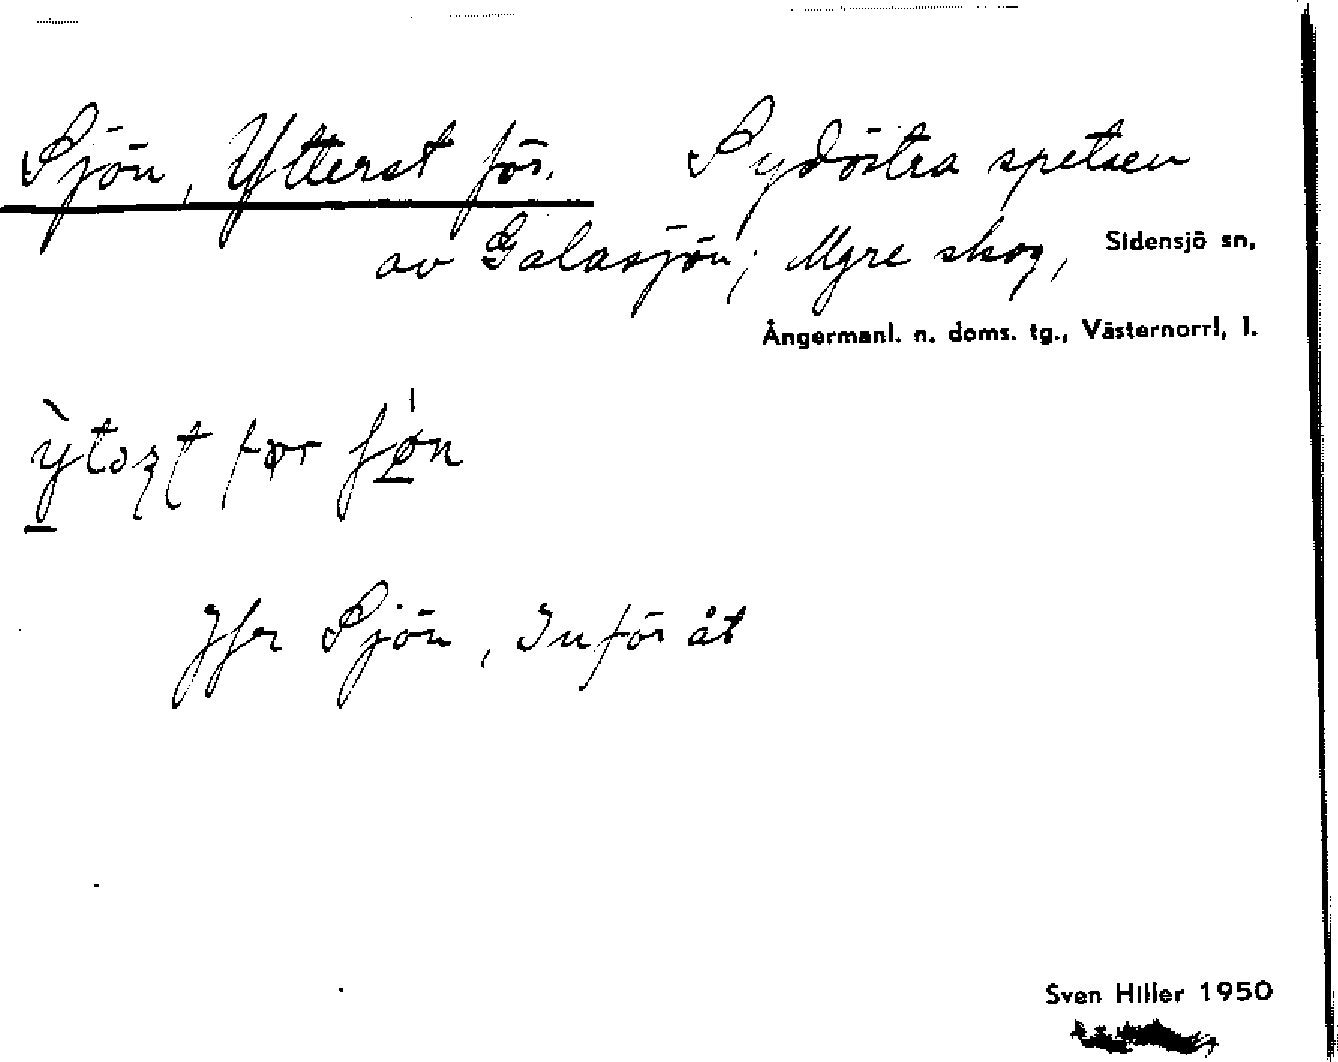 Sjön, Ytterst för. Sydöstra spetsen
av Galasjön; Myre skog, Sidensjö sn,
Ångermanl. n. doms. tg., Västernorrl, l.
för
Jfr Sjön, Inför åt
Sven Hiller 1950